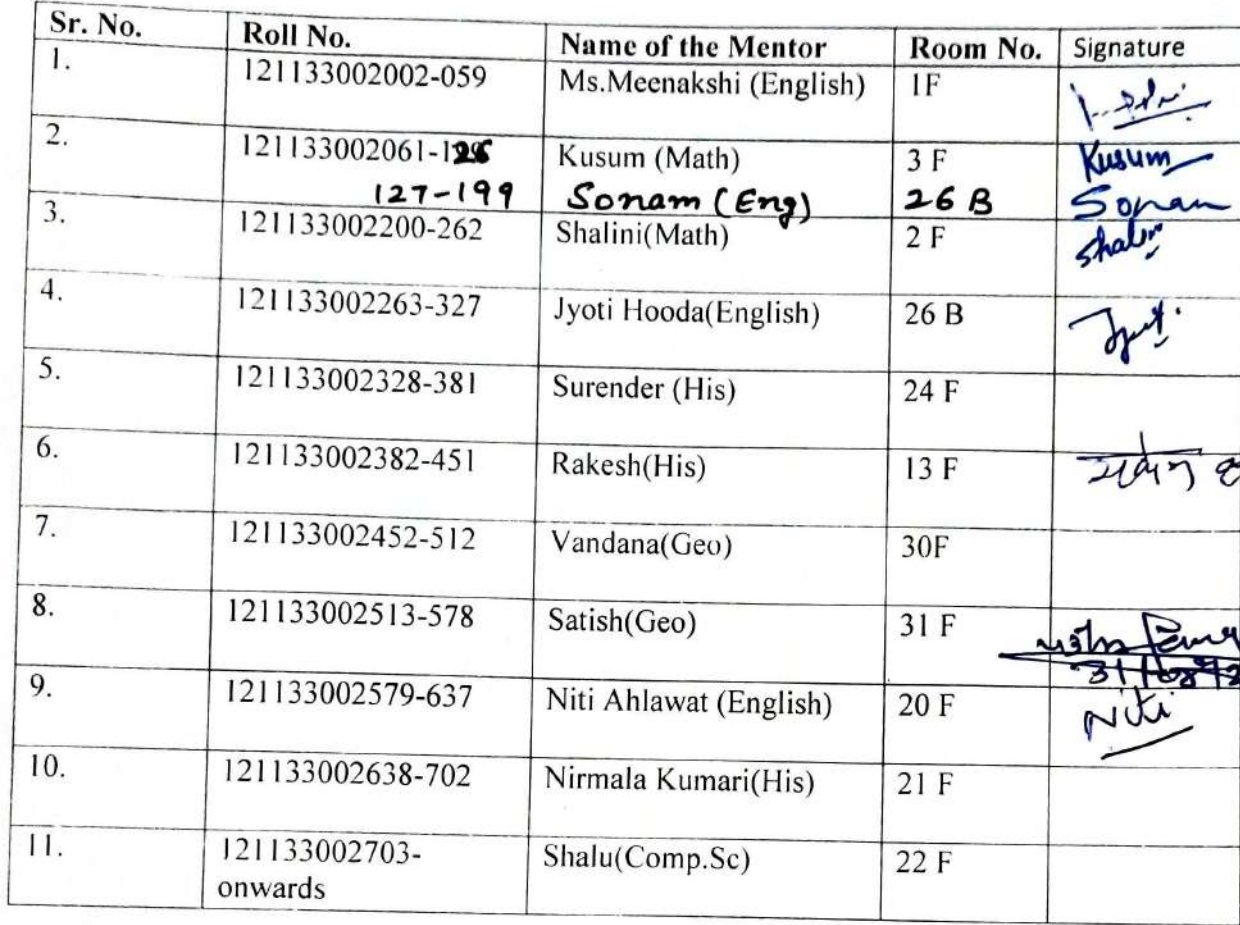 Sr. No. Roll No. Name of the Mentor Room No. Signature
1. 121133002002-059 Ms.Meenakshi (English) 1F
2. 121133002061-126 Kusum (Math) 3 F Kusum
127-199 Sonam (Eng) 26 B Sonam
3. 121133002200-262 Shalini(Math) 2 F Shalini
4. 121133002263-327 Jyoti Hooda(English) 26 B Jyoti
5. 121133002328-381 Surender (His) 24 F
6. 121133002382-451 Rakesh(His) 13 F
7. 121133002452-512 Vandana(Geo) 30F
8. 121133002513-578 Satish(Geo) 31 F
9. 121133002579-637 Niti Ahlawat (English) 20 F Niti
10. 121133002638-702 Nirmala Kumari(His) 21 F
11. 121133002703- Shalu(Comp.Sc) 22 F
onwards